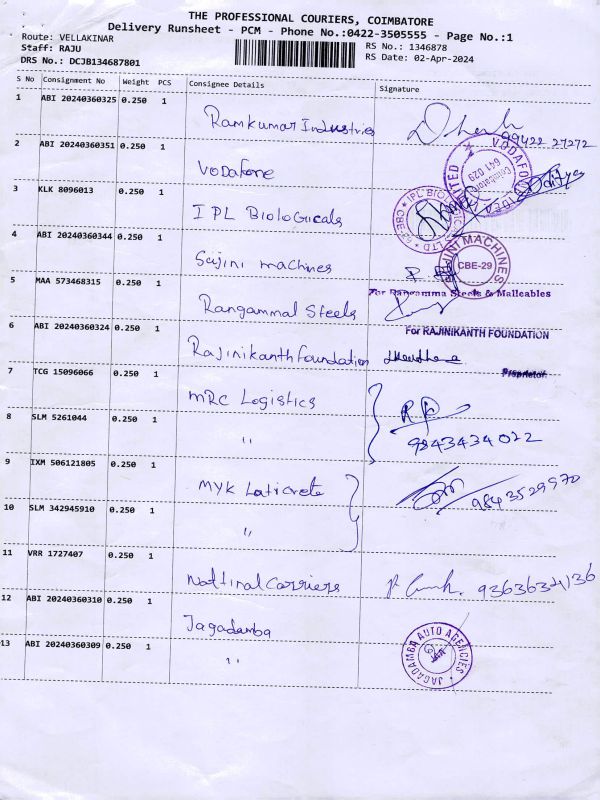 THE PROFESSIONAL COURIERS, COIMBATORE
Delivery Runsheet - PCM - Phone No.:0422-3505555 - Page No.:1
Route: VELLAKINAR
Staff: RAJU
DRS No.: DCJB134687801
RS No.: 1346878
RS Date: 02-Apr-2024
S No Consignment No Weight PCS Consignee Details Signature
1 ABI 20240360325 0.250 1 Ramkumar Industries 99422 27272
2 ABI 20240360351 0.250 1 Vodafone
VODAFONE IDEA LIMITED
Coimbatore
641 029
3 KLK 8096013 0.250 1 IPL Biologicals
IPL BIOLOGICALS LTD
4 ABI 20240360344 0.250 1 Sajini machines
SAJINI MACHINES
CBE-29
5 MAA 573468315 0.250 1 Rangammal Steels
For Rangamma Steels & Malleables
6 ABI 20240360324 0.250 1 Rajinikanth foundation
For RAJINIKANTH FOUNDATION
Proprietor
7 TCG 15096066 0.250 1 MRC Logistics
8 SLM 5261044 0.250 1 " 9843434022
9 IXM 506121805 0.250 1 MYK Laticrete 9843529970
10 SLM 342945910 0.250 1 "
11 VRR 1727407 0.250 1 National Carriers 9363634136
12 ABI 20240360310 0.250 1 Jagadamba
13 ABI 20240360309 0.250 1 "
JAGADAMBA AUTO AGENCIES